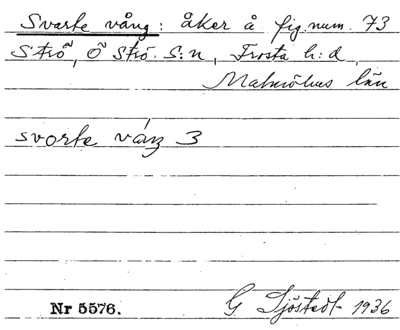 Svarte vång: åker å fig.num. 73
Strö, Ö Strö S:n, Frosta h:d,
Malmöhus län
svorte våŋ 3
Nr 5576.
G Sjöstedt 1936